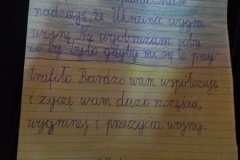 nadzieję, że Ukraina wygra
wojnę. Nie wyobrażam sobie
co by było gdyby mi się to przy
trafiło. Bardzo wam współczuję
i życzę wam dużo szczęścia,
wygranej i przeżycia wojny.